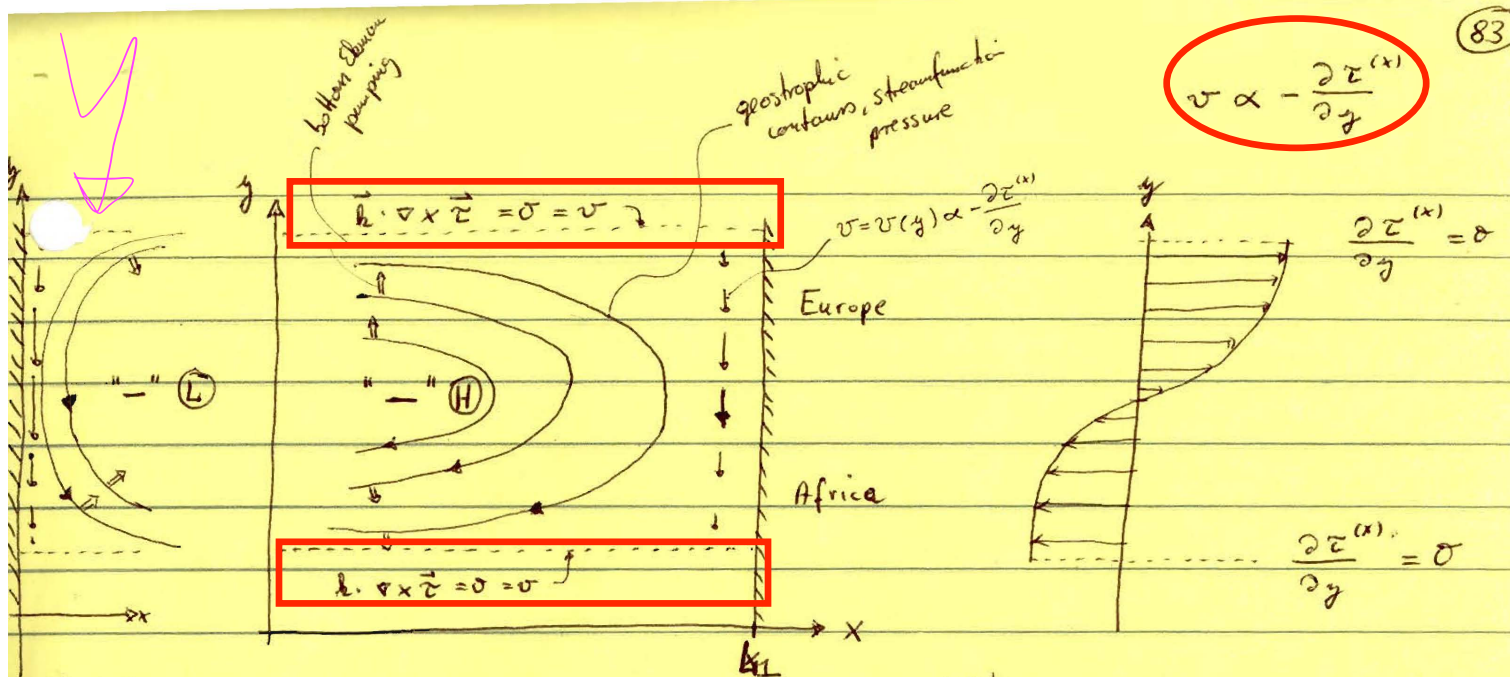 83
v ∝ - ∂τ^(x)/∂y
bottom Ekman
pumping
geostrophic
contours, streamfunction
pressure
y
y
k⃗ · ∇ × τ⃗ = 0 = v
v = v(y) ∝ - ∂τ^(x)/∂y
y
∂τ^(x)/∂y = 0
Europe
"—" L
"—" H
Africa
∂τ^(x)/∂y = 0
k · ∇ × τ⃗ = 0 = v
x
x